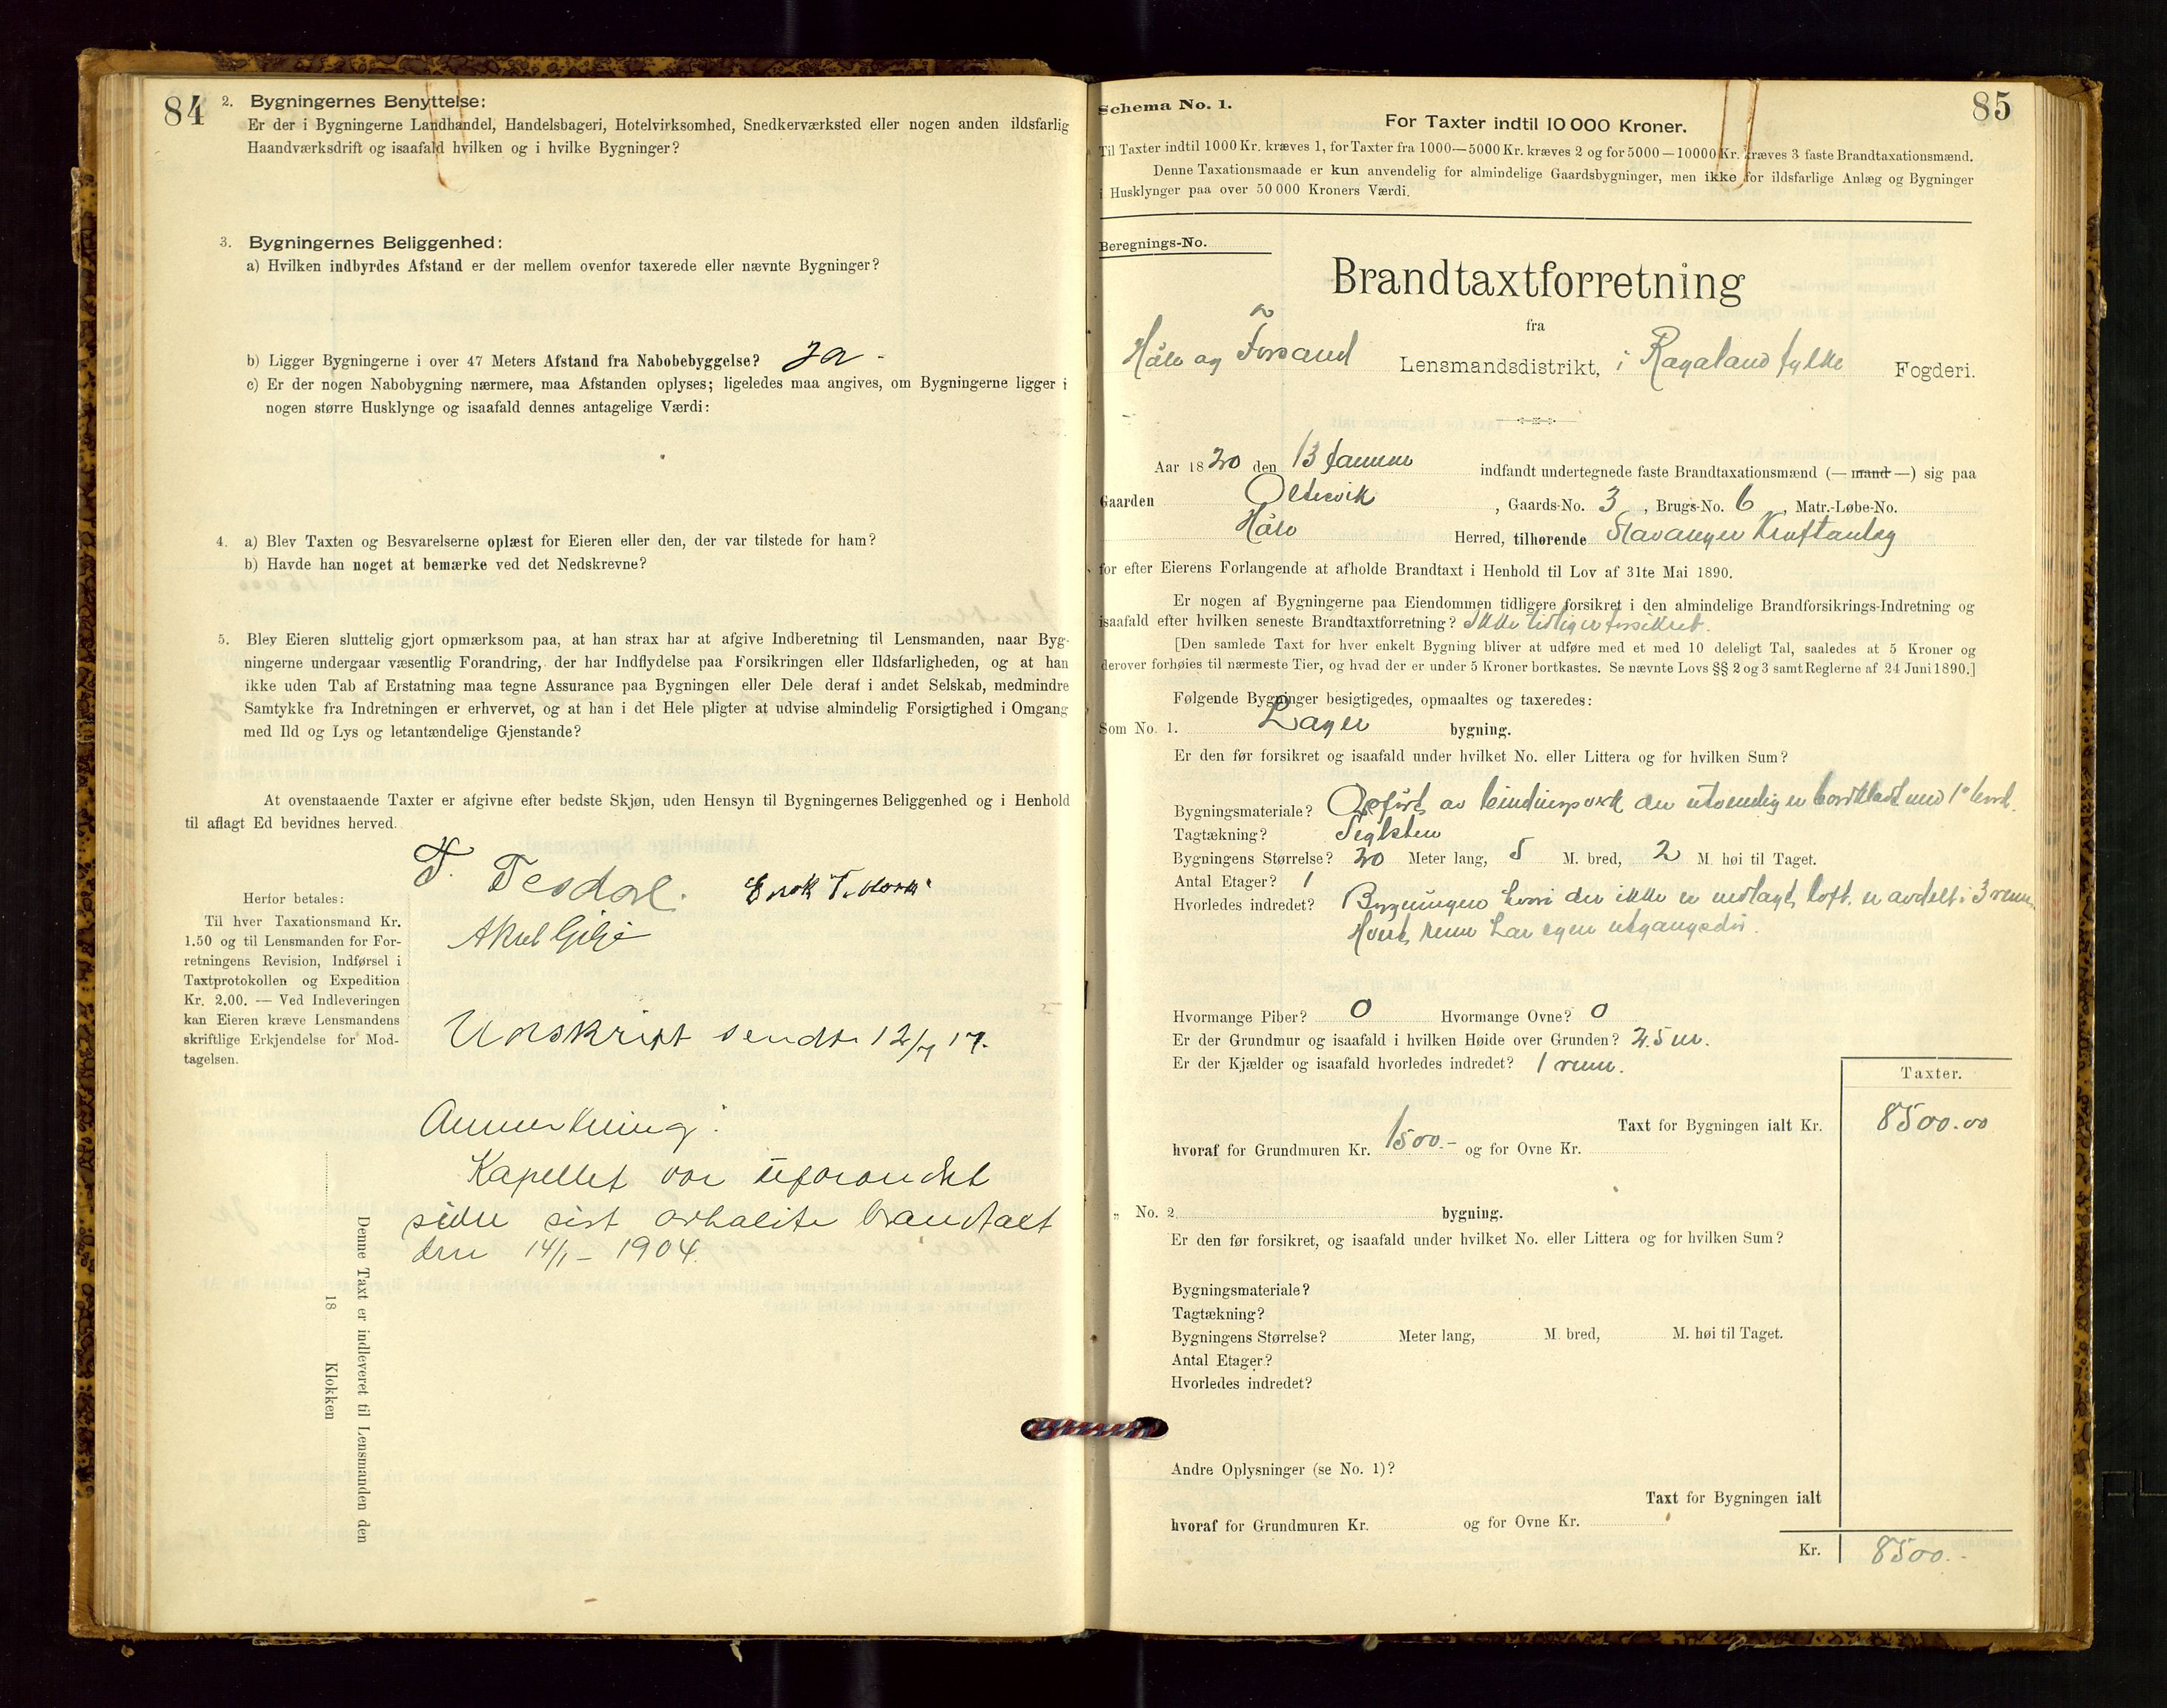 84
2. Bygningernes Benyttelse:
Er der i Bygningerne Landhandel, Handelsbageri, Hotelvirksomhed, Snedkerværksted eller nogen anden ildsfarlig
Haandværksdrift og isaafald hvilken og i hvilke Bygninger?
3. Bygningernes Beliggenhed:
a) Hvilken indbyrdes Afstand er der mellem ovenfor taxerede eller nævnte Bygninger?
b) Ligger Bygningerne i over 47 Meters Afstand fra Nabobebyggelse? Ja -
c) Er der nogen Nabobygning nærmere, maa Afstanden oplyses; ligeledes maa angives, om Bygningerne ligger i
nogen større Husklynge og isaafald dennes antagelige Værdi:
4. a) Blev Taxten og Besvarelserne oplæst for Eieren eller den, der var tilstede for ham?
b) Havde han noget at bemærke ved det Nedskrevne?
5. Blev Eieren sluttelig gjort opmærksom paa, at han strax har at afgive Indberetning til Lensmanden, naar Byg-
ningerne undergaar væsentlig Forandring, der har Indflydelse paa Forsikringen eller Ildsfarligheden, og at han
ikke uden Tab af Erstatning maa tegne Assurance paa Bygningen eller Dele deraf i andet Selskab, medmindre
Samtykke fra Indretningen er erhvervet, og at han i det Hele pligter at udvise almindelig Forsigtighed i Omgang
med Ild og Lys og letantændelige Gjenstande?
At ovenstaaende Taxter er afgivne efter bedste Skjøn, uden Hensyn til Bygningernes Beliggenhed og i Henhold
til aflagt Ed bevidnes herved.
T. Tesdal.
Aksel Gilje
Herfor betales:
Til hver Taxationsmand Kr.
1.50 og til Lensmanden for For-
retningens Revision, Indførsel i
Taxtprotokollen og Expedition
Kr. 2.00. — Ved Indleveringen
kan Eieren kræve Lensmandens
skriftlige Erkjendelse for Mod-
tagelsen.
Utskrift sendt 12/7 17.
Anmerkning:
Kapellet var uforandret
siden sist avholdte brandtakt
den 14/1 - 1904.
Denne Taxt er indleveret til Lensmanden den
18 Klokken
85
Schema No. 1.
For Taxter indtil 10 000 Kroner.
Til Taxter indtil 1000 Kr. kræves 1, for Taxter fra 1000—5000 Kr. kræves 2 og for 5000—10000 Kr. kræves 3 faste Brandtaxationsmænd.
Denne Taxationsmaade er kun anvendelig for almindelige Gaardsbygninger, men ikke for ildsfarlige Anlæg og Bygninger
i Husklynger paa over 50 000 Kroners Værdi.
Beregnings-No.
Brandtaxtforretning
fra
Høle og Forsand Lensmandsdistrikt, i Rogaland fylke Fogderi.
Aar 1820 den 13 januar indfandt undertegnede faste Brandtaxationsmænd (— mand —) sig paa
Gaarden Oltesvik, Gaards-No. 3, Brugs-No. 6, Matr.-Løbe-No.
Høle Herred, tilhørende Stavanger Kraftanlæg
for efter Eierens Forlangende at afholde Brandtaxt i Henhold til Lov af 31te Mai 1890.
Er nogen af Bygningerne paa Eiendommen tidligere forsikret i den almindelige Brandforsikrings-Indretning og
isaafald efter hvilken seneste Brandtaxtforretning? Ikke tidliger forsikret.
[Den samlede Taxt for hver enkelt Bygning bliver at udføre med et med 10 deleligt Tal, saaledes at 5 Kroner og
derover forhøies til nærmeste Tier, og hvad der er under 5 Kroner bortkastes. Se nævnte Lovs §§ 2 og 3 samt Reglerne af 24 Juni 1890.]
Følgende Bygninger besigtigedes, opmaaltes og taxeredes:
Som No. 1. Lager bygning.
Er den før forsikret og isaafald under hvilket No. eller Littera og for hvilken Sum?
Bygningsmateriale? Opført av bindingsverk der utvendig er bordklædt med 1" bord.
Tagtækning? Teglsten
Bygningens Størrelse? 20 Meter lang, 5 M. bred, 2 M. høi til Taget.
Antal Etager? 1
Hvorledes indredet? Bygningen hvori der ikke er nedlagt loft, er avdelt i 3 rum.
Hvert rum har egen utgangsdør.
Hvormange Piber? 0 Hvormange Ovne? 0
Er der Grundmur og isaafald i hvilken Høide over Grunden? 2.5 m.
Er der Kjælder og isaafald hvorledes indredet? 1 rum.
Taxter.
Taxt for Bygningen ialt Kr. 8500.00
hvoraf for Grundmuren Kr. 1500.- og for Ovne Kr.
„ No. 2 bygning.
Er den før forsikret, og isaafald under hvilket No. eller Littera og for hvilken Sum?
Bygningsmateriale?
Tagtækning?
Bygningens Størrelse? Meter lang, M. bred, M. høi til Taget.
Antal Etager?
Hvorledes indredet?
Andre Oplysninger (se No. 1)?
Taxt for Bygningen ialt
hvoraf for Grundmuren Kr. og for Ovne Kr.
Kr. 8500.-